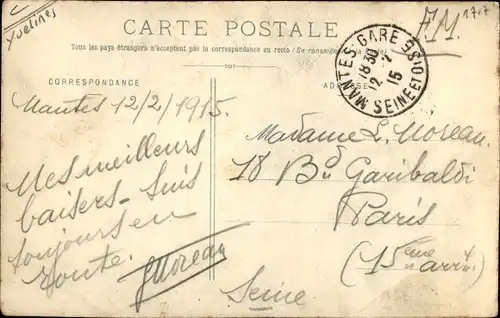 Yvelines
CARTE POSTALE
F.M.
1717
Tous les pays étrangers n'acceptent pas la correspondance au recto (Se renseigner
MANTES-GARE
18 30
12 - 2
15
SEINE-ET-OISE
CORRESPONDANCE
Mantes 12/2/1915.
Mes meilleurs
baisers - Suis
toujours en
route.
JMoreau
Madame L. Moreau.
18 Bd Garibaldi
Paris
(15eme arrt.)
Seine